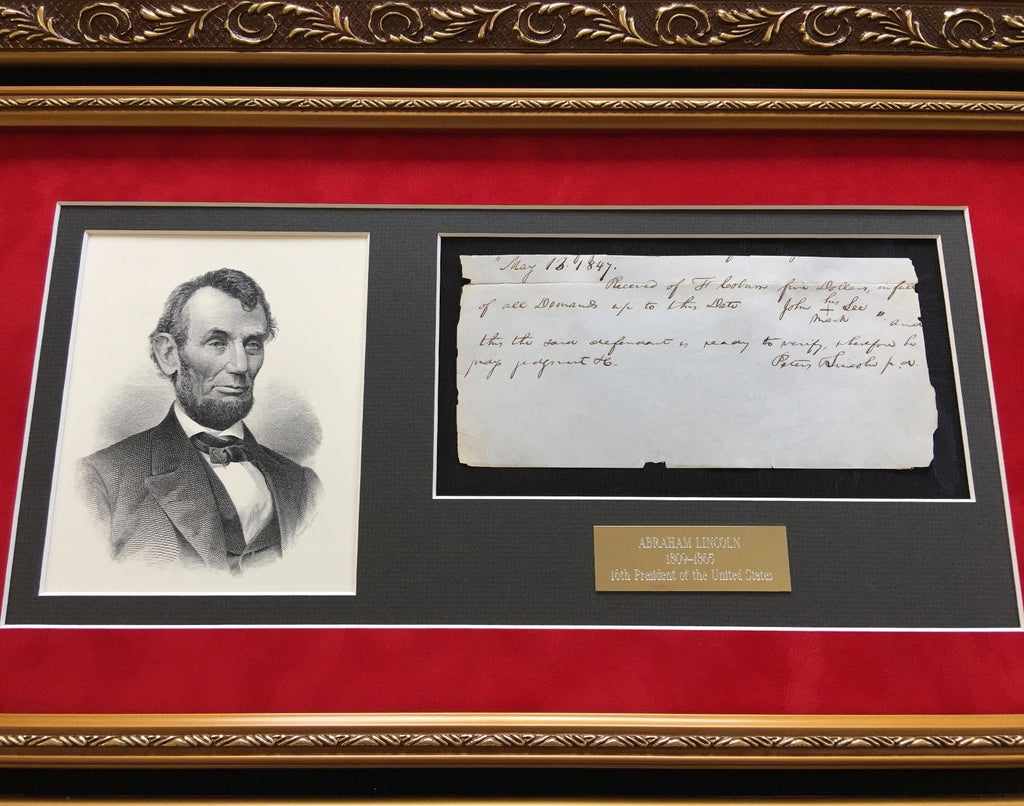 "May 13. 1847.
Received of H Coburn five Dollars, in full
of all Demands up to this Date John his Lee
mark " and
this the said defendant is ready to verify, wherefore he
prays judgment &c. Peters & Lincoln p. d.
ABRAHAM LINCOLN
1809–1865
16th President of the United States